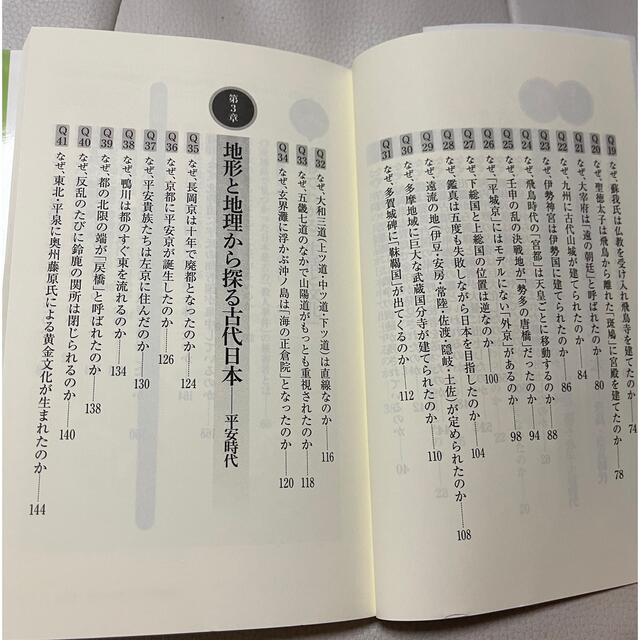 Q19 なぜ、蘇我氏は仏教を受け入れ飛鳥寺を建てたのか 74
Q20 なぜ、聖徳太子は飛鳥から離れた「斑鳩」に宮殿を建てたのか 78
Q21 なぜ、大宰府は「遠の朝廷」と呼ばれたのか 80
Q22 なぜ、九州に古代山城が建てられたのか 84
Q23 なぜ、伊勢神宮は伊勢国に建てられたのか 86
Q24 なぜ、飛鳥時代の「宮都」は天皇ごとに移動するのか 88
Q25 なぜ、壬申の乱の決戦地が「勢多の唐橋」だったのか 94
なぜ、「平城京」にはモデルにない「外京」があるのか 98
Q27 なぜ、下総国と上総国の位置は逆なのか 100
Q28 なぜ、鑑真は五度も失敗しながら日本を目指したのか 104
Q29 なぜ、遠流の地(伊豆・安房・常陸・佐渡・隠岐・土佐)が定められたのか 108
Q30 なぜ、多摩地域に巨大な武蔵国分寺が建てられたのか 110
Q31 なぜ、多賀城碑に「靺鞨国」が出てくるのか 112
Q32 なぜ、大和三道(上ツ道・中ツ道・下ツ道)は直線なのか 116
Q33 なぜ、五畿七道のなかで山陽道がもっとも重視されたのか 118
Q34 なぜ、玄界灘に浮かぶ沖ノ島は「海の正倉院」となったのか 120
第3章
地形と地理から探る古代日本――平安時代
Q35 なぜ、長岡京は十年で廃都となったのか 124
Q36 なぜ、京都に平安京が誕生したのか 126
Q37 なぜ、平安貴族たちは左京に住んだのか 130
Q38 なぜ、鴨川は都のすぐ東を流れるのか 134
Q39 なぜ、都の北限の端が「戻橋」と呼ばれたのか 138
Q40 なぜ、反乱のたびに鈴鹿の関所は閉じられるのか 140
Q41 なぜ、東北・平泉に奥州藤原氏による黄金文化が生まれたのか 144